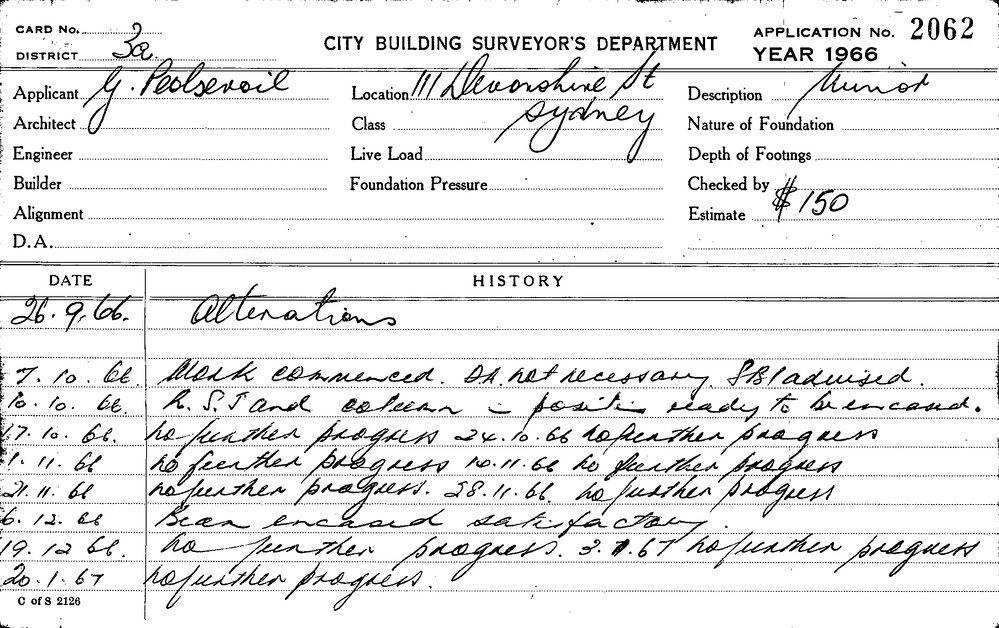 CARD No.
DISTRICT 3a
CITY BUILDING SURVEYOR'S DEPARTMENT
APPLICATION No. 2062
YEAR 1966
Applicant G.
Location 111 Devonshire St
Sydney
Description Minor
Architect
Class
Nature of Foundation
Engineer
Live Load
Depth of Footings
Builder
Foundation Pressure
Checked by
Alignment
Estimate $150
D.A.
DATE HISTORY
26.9.66. Alterations
7.10.66 Work commenced. DA not necessary. SBI advised.
10.10.66 R.S.J and column in position ready to be encased.
17.10.66. no further progress 24.10.66 no further progress
1.11.66 no further progress 10.11.66 no further progress
21.11.66 no further progress. 28.11.66. no further progress
6.12.66 Beam encased satisfactory.
19.12.66. no further progress. 3.1.67 no further progress
20.1.67 no further progress.
C of S 2126